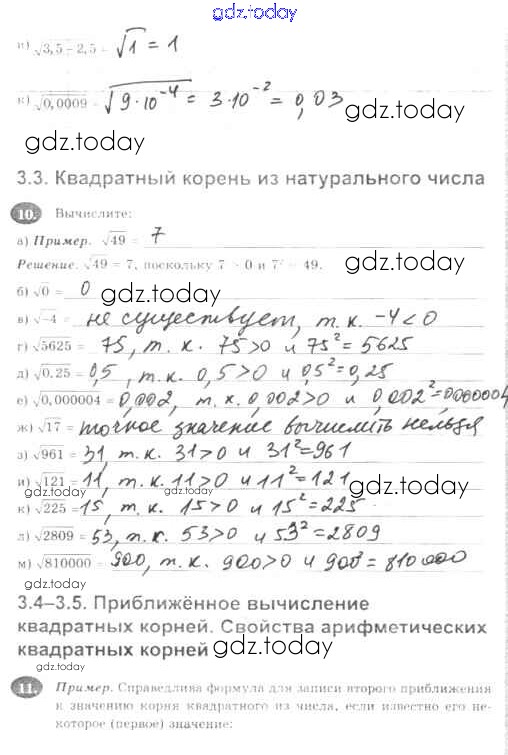 gdz.today
и) √3,5 – 2,5 = √1 = 1
к) √0,0009 = √9·10⁻⁴ = 3·10⁻² = 0,03
gdz.today gdz.today
3.3. Квадратный корень из натурального числа
10. Вычислите:
gdz.today
а) Пример. √49 = 7
Решение. √49 = 7, поскольку 7 > 0 и 7² = 49.
gdz.today
б) √0 = 0
gdz.today
в) √–4 = не существует, т.к. –4<0
г) √5625 = 75, т.к. 75>0 и 75² = 5625
д) √0,25 = 0,5, т.к. 0,5>0 и 0,5² = 0,25
е) √0,000004 = 0,002, т.к. 0,002>0 и 0,002² = 0,000004
ж) √17 = точное значение вычислить нельзя
з) √961 = 31, т.к. 31>0 и 31² = 961
и) √121 = 11, т.к. 11>0 и 11² = 121
gdz.today gdz.today gdz.today
к) √225 = 15, т.к. 15>0 и 15² = 225
л) √2809 = 53, т.к. 53>0 и 53² = 2809
м) √810000 = 900, т.к. 900>0 и 900² = 810000
gdz.today
3.4–3.5. Приближённое вычисление
квадратных корней. Свойства арифметических
квадратных корней
gdz.today gdz.today
11. Пример. Справедлива формула для записи второго приближения
к значению корня квадратного из числа, если известно его не-
которое (первое) значение:
gdz.today